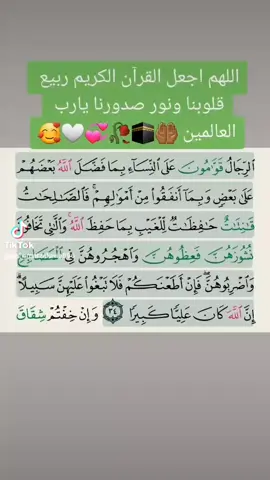 اللهم اجعل القرآن الكريم ربيع
قلوبنا ونور صدورنا يارب
العالمين 🤲🏾🕋🥀💕🤍🥰
ٱلرِّجَالُ قَوَّٰمُونَ عَلَى ٱلنِّسَآءِ بِمَا فَضَّلَ ٱللَّهُ بَعۡضَهُمۡ
عَلَىٰ بَعۡضٖ وَبِمَآ أَنفَقُواْ مِنۡ أَمۡوَٰلِهِمۡۚ فَٱلصَّٰلِحَٰتُ
قَٰنِتَٰتٌ حَٰفِظَٰتٞ لِّلۡغَيۡبِ بِمَا حَفِظَ ٱللَّهُۚ وَٱلَّٰتِي تَخَافُونَ
نُشُوزَهُنَّ فَعِظُوهُنَّ وَٱهۡجُرُوهُنَّ فِي ٱلۡمَضَاجِعِ
وَٱضۡرِبُوهُنَّۖ فَإِنۡ أَطَعۡنَكُمۡ فَلَا تَبۡغُواْ عَلَيۡهِنَّ سَبِيلًاۗ
إِنَّ ٱللَّهَ كَانَ عَلِيّٗا كَبِيرٗا ٣٤ وَإِنۡ خِفۡتُمۡ شِقَاقَ
TikTok